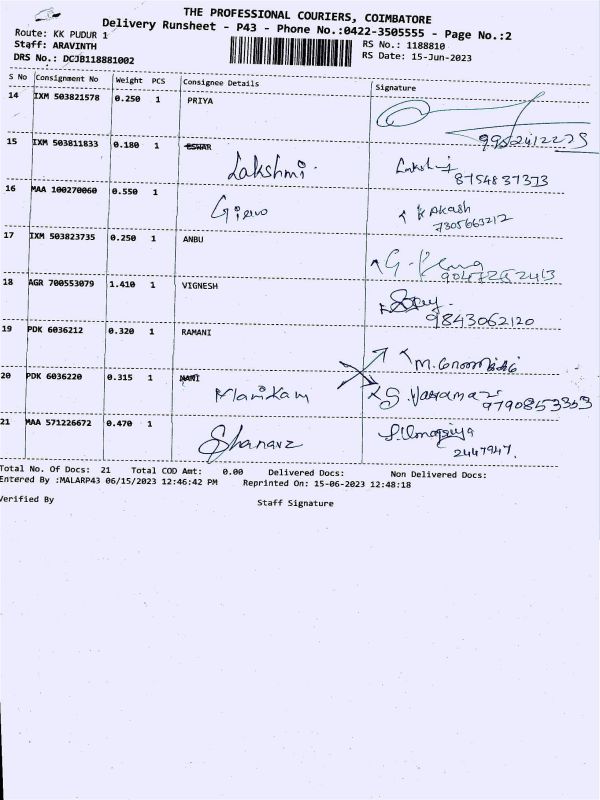 THE PROFESSIONAL COURIERS, COIMBATORE
Delivery Runsheet - P43 - Phone No.:0422-3505555 - Page No.:2
Route: KK PUDUR 1
Staff: ARAVINTH
DRS No.: DCJB118881002
RS No.: 1188810
RS Date: 15-Jun-2023
S No Consignment No Weight PCS Consignee Details Signature
14 IXM 503821578 0.250 1 PRIYA
15 IXM 503811833 0.180 1 ESWAR Lakshmi 8754837373
16 MAA 100270060 0.550 1 K AKash
7305663212
17 IXM 503823735 0.250 1 ANBU
18 AGR 700553079 1.410 1 VIGNESH
9843062120
19 PDK 6036212 0.320 1 RAMANI
20 PDK 6036220 0.315 1 MANI Manikam
21 MAA 571226672 0.470 1
2447947.
Total No. Of Docs: 21 Total COD Amt: 0.00 Delivered Docs: Non Delivered Docs:
Entered By :MALARP43 06/15/2023 12:46:42 PM Reprinted On: 15-06-2023 12:48:18
Verified By Staff Signature